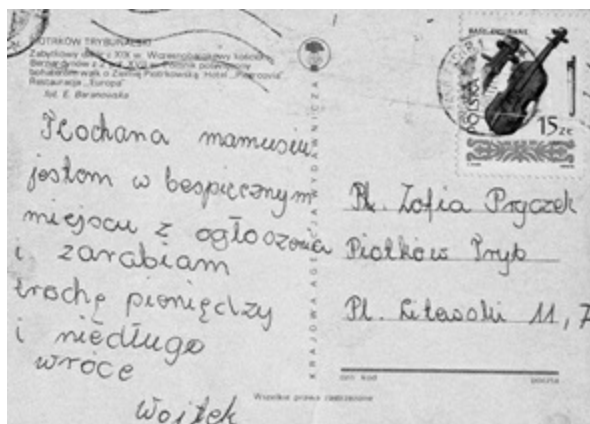 PIOTRKÓW TRYBUNALSKI
Zabytkowy dwór z XIX w. Wczesnobarokowy kościół
Bernardynów z
bohaterom walk o Ziemię Piotrkowską. Hotel
Restauracja „Europa”
fot. E. Baranowska
Kochana mamusiu
jostom w bespiecznym
miejscu z ogłoszonia
i zarabiam
trochę pioniędzy
i niedługo
wróce
Wojtek
KRAJOWA AGENCJA WYDAWNICZA
POLSKA
15 ZŁ
Pk. Zofia Pryczek
Piotków Tryb
Pl. Litewski 11,7
kod
poczta
Wszelkie prawa zastrzeżone